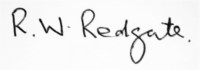 R. W. Redgate.